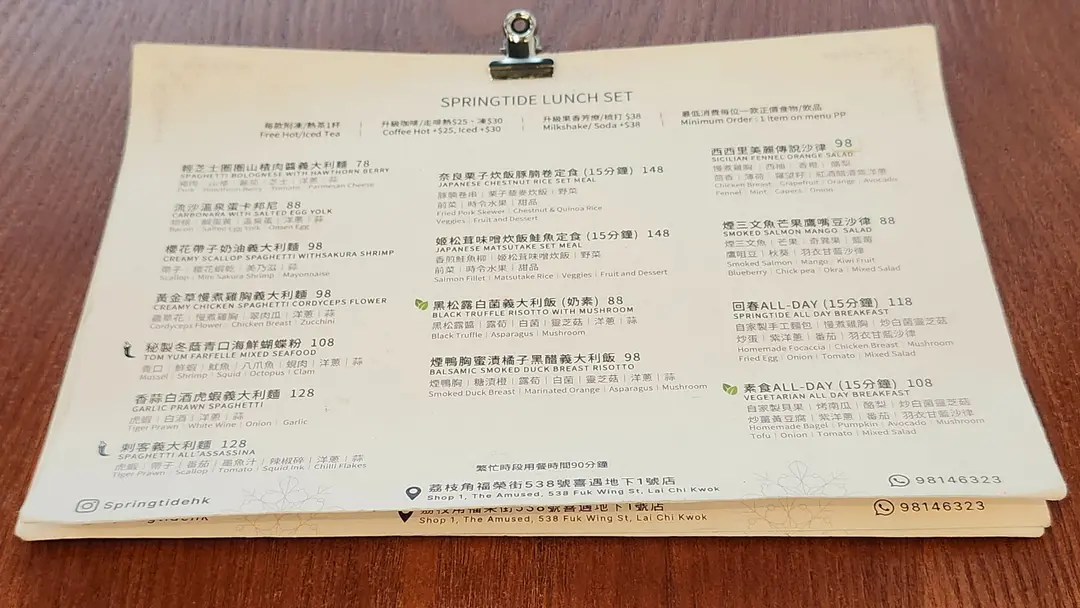 SPRINGTIDE LUNCH SET
每款附凍/熱茶1杯
Free Hot/Iced Tea
升級咖啡/走啡熱$25、凍$30
Coffee Hot +$25, Iced +$30
升級果香芳療/梳打 $38
Milkshake/ Soda +$38
最低消費每位一款正價食物/飲品
Minimum Order : 1 Item on menu PP
輕芝士圈圈山楂肉醬義大利麵 78
SPAGHETTI BOLOGNESE WITH HAWTHORN BERRY
豬肉 | 山楂 | 蘑菇 | 芝士 | 洋蔥 | 蒜
Pork | Hawthorn Berry | Tomato | Parmesan Cheese
流沙溫泉蛋卡邦尼 88
CARBONARA WITH SALTED EGG YOLK
煙腩 | 鹹蛋黃 | 溫泉蛋 | 洋蔥 | 蒜
Bacon | Salted Egg Yolk | Onsen Egg
櫻花帶子奶油義大利麵 98
CREAMY SCALLOP SPAGHETTI WITHSAKURA SHRIMP
帶子 | 櫻花蝦乾 | 美乃滋 | 蒜
Scallop | Mini Sakura Shrimp | Mayonnaise
黃金草慢煮雞胸義大利麵 98
CREAMY CHICKEN SPAGHETTI CORDYCEPS FLOWER
蟲草花 | 慢煮雞胸 | 翠肉瓜 | 洋蔥 | 蒜
Cordyceps Flower | Chicken Breast | Zucchini
秘製冬蔭青口海鮮蝴蝶粉 108
TOM YUM FARFELLE MIXED SEAFOOD
青口 | 鮮蝦 | 魷魚 | 八爪魚 | 蜆肉 | 洋蔥 | 蒜
Mussel | Shrimp | Squid | Octopus | Clam
香蒜白酒虎蝦義大利麵 128
GARLIC PRAWN SPAGHETTI
虎蝦 | 白酒 | 洋蔥 | 蒜
Tiger Prawn | White Wine | Onion | Garlic
刺客義大利麵 128
SPAGHETTI ALL'ASSASSINA
虎蝦 | 帶子 | 番茄 | 墨魚汁 | 辣椒碎 | 洋蔥 | 蒜
Tiger Prawn | Scallop | Tomato | Squid Ink | Chilli Flakes
奈良栗子炊飯豚腩卷定食 (15分鐘) 148
JAPANESE CHESTNUT RICE SET MEAL
豚腩卷串 | 栗子藜麥炊飯 | 野菜
前菜 | 時令水果 | 甜品
Fried Pork Skewer | Chestnut & Quinoa Rice
Veggies | Fruit and Dessert
姬松茸味噌炊飯鮭魚定食 (15分鐘) 148
JAPANESE MATSUTAKE SET MEAL
香煎鮭魚柳 | 姬松茸味噌炊飯 | 野菜
前菜 | 時令水果 | 甜品
Salmon Fillet | Matsutake Rice | Veggies | Fruit and Dessert
黑松露白菌義大利飯 (奶素) 88
BLACK TRUFFLE RISOTTO WITH MUSHROOM
黑松露醬 | 露荀 | 白菌 | 靈芝菇 | 洋蔥 | 蒜
Black Truffle | Asparagus | Mushroom
煙鴨胸蜜漬橘子黑醋義大利飯 98
BALSAMIC SMOKED DUCK BREAST RISOTTO
煙鴨胸 | 糖漬橙 | 露荀 | 白菌 | 靈芝菇 | 洋蔥 | 蒜
Smoked Duck Breast | Marinated Orange | Asparagus | Mushroom
西西里美麗傳說沙律 98
SICILIAN FENNEL ORANGE SALAD
慢煮雞胸 | 西柚 | 香橙 | 酪梨
茴香 | 薄荷 | 羅望籽 | 紅酒醋漬紫洋蔥
Chicken Breast | Grapefruit | Orange | Avocado
Fennel | Mint | Capers | Onion
煙三文魚芒果鷹嘴豆沙律 88
SMOKED SALMON MANGO SALAD
煙三文魚 | 芒果 | 奇異果 | 藍莓
鷹咀豆 | 秋葵 | 羽衣甘藍沙律
Smoked Salmon | Mango | Kiwi Fruit
Blueberry | Chick pea | Okra | Mixed Salad
回春ALL-DAY (15分鐘) 118
SPRINGTIDE ALL DAY BREAKFAST
自家製手工麵包 | 慢煮雞胸 | 炒白菌靈芝菇
炒蛋 | 紫洋蔥 | 番茄 | 羽衣甘藍沙律
Homemade Focaccia | Chicken Breast | Mushroom
Fried Egg | Onion | Tomato | Mixed Salad
素食ALL-DAY (15分鐘) 108
VEGETARIAN ALL DAY BREAKFAST
自家製貝果 | 烤南瓜 | 酪梨 | 炒白菌靈芝菇
炒薑黃豆腐 | 紫洋蔥 | 番茄 | 羽衣甘藍沙律
Homemade Bagel | Pumpkin | Avocado | Mushroom
Tofu | Onion | Tomato | Mixed Salad
繁忙時段用餐時間90分鐘
Springtidehk
荔枝角福榮街538號喜遇地下1號店
Shop 1, The Amused, 538 Fuk Wing St, Lai Chi Kwok
98146323
荔枝角福榮街538號喜遇地下1號店
Shop 1, The Amused, 538 Fuk Wing St, Lai Chi Kwok
98146323